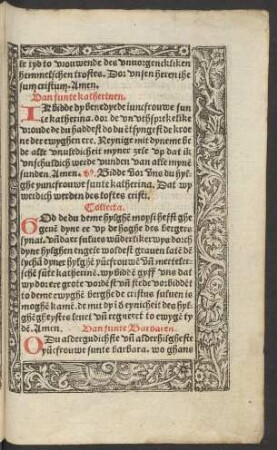 le tyd to vrouwende des vnuorgenckliken
hemmelschen trostes. Dor vnsen heren ihe
sum cristum. Amen.
Van sunte katherinen.
IK bidde dy benedyede iuncfrouwe sun
te katherina. dor de vnvthsprekelike
vroude de du haddest do du ētfyngest de krone
der ewyghen ere. Reynige mit dyneme be
de alle vnsuldicheit myner zele vp dat ik
vnschuldich werde vunden van alle myne
sunden. Amen. Bidde vor vns du hyl
ghe yuncfrouwe sunte katherina. Dat wy
werdich werden des loftes cristi.
Collecta.
GOd de du deme hylghē moysi hefft ghe
geuē dyne ee vp de hoghe des berges
synai. vn̄ dar sulues wūderlikerwys dorch
dyne hylghen engele woldest grauen latē dē
lychā dyner hylghē yūcfrouwē vn̄ mertelers
schē sūte katherinē. wy biddē gyff vns dat
wy dor ere grote vordēst vn̄ stede vorbiddēt
to deme ewyghē berghe de cristus suluen is
moghē kamē. de mit dy ī eynicheit des hyl
ghē gheystes leuet vn̄ regneret to ewygē ty
dē. Amen. Van sunte Barbaren.
O Du aldergudichste vn̄ alderhilgheste
yūcfrouwe sunte barbara. wo ghans